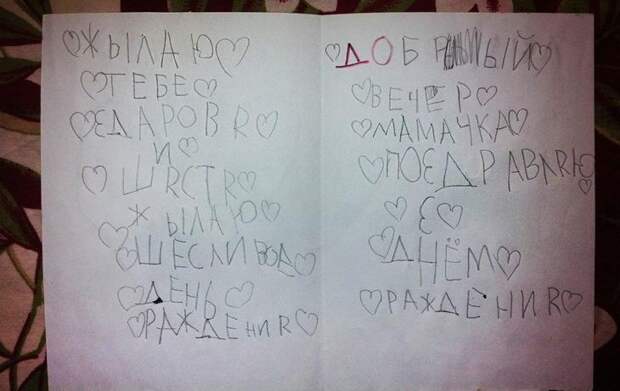 ЖЫЛАЮ
ТЕБЕ
ЗДАРОВЯ
И
ШЯСТЯ
ЖЫЛАЮ
ШЕСЛИВОВО
ДЕНЬ
РАЖДЕНИЯ
ДОБРЫЙ
ВЕЧЕР
МАМАЧКА
ПОЗДРАВЛЯЮ
З
ДНЁМ
РАЖДЕНИЯ